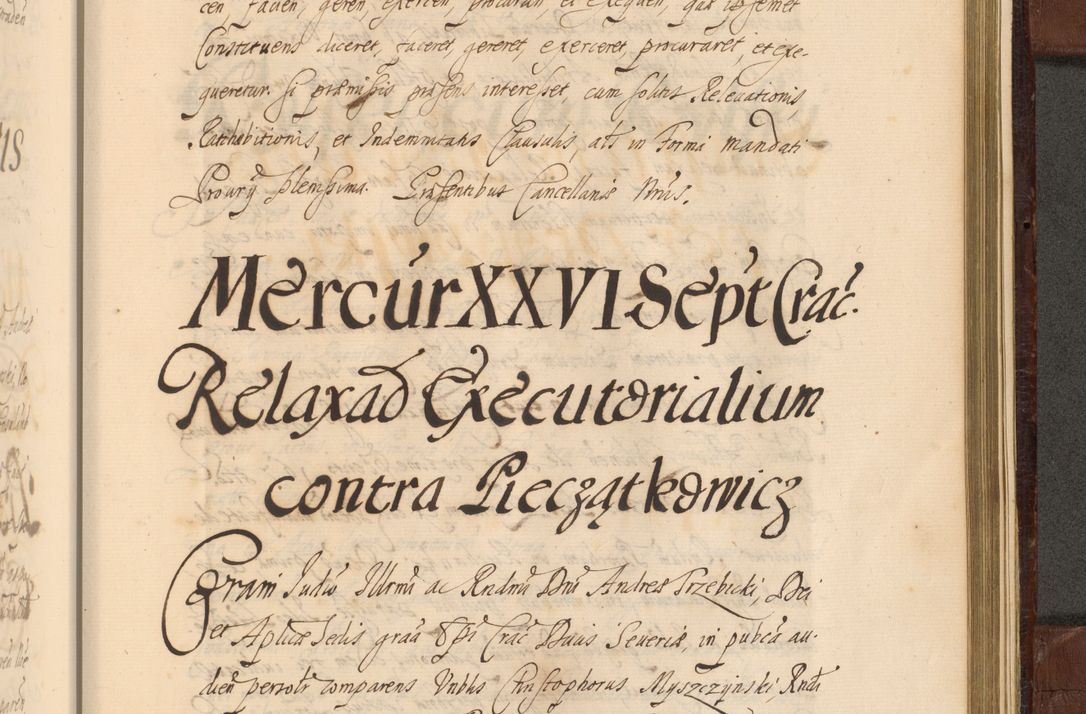 cen, facien, geren, exercen, procuran, et exequen, quæ idemet
Constituens diceret, faceret, gereret, exerceret, procuraret, et exe-
queretur. si præmissis præsens interesset, cum solitis Relevationis
Rathibitionis, et Indemnitatis Clausulis, als in Forma mandati
Procurÿ plenissima. Præsentibus Cancellariæ Nris.
Mercur XXVI Sept Crac.
Relaxaõ Executorialium
contra Pieczątkowicz
Coram Judio Illrmi ac Rndmi Dni Andreæ Trzebicki, Dei
et Aplicæ Sedis graa Epi Crac Ducis Severiæ, in publca au-
dien persolr comparens Vnblis Christophorus Myszczÿnski Rndi